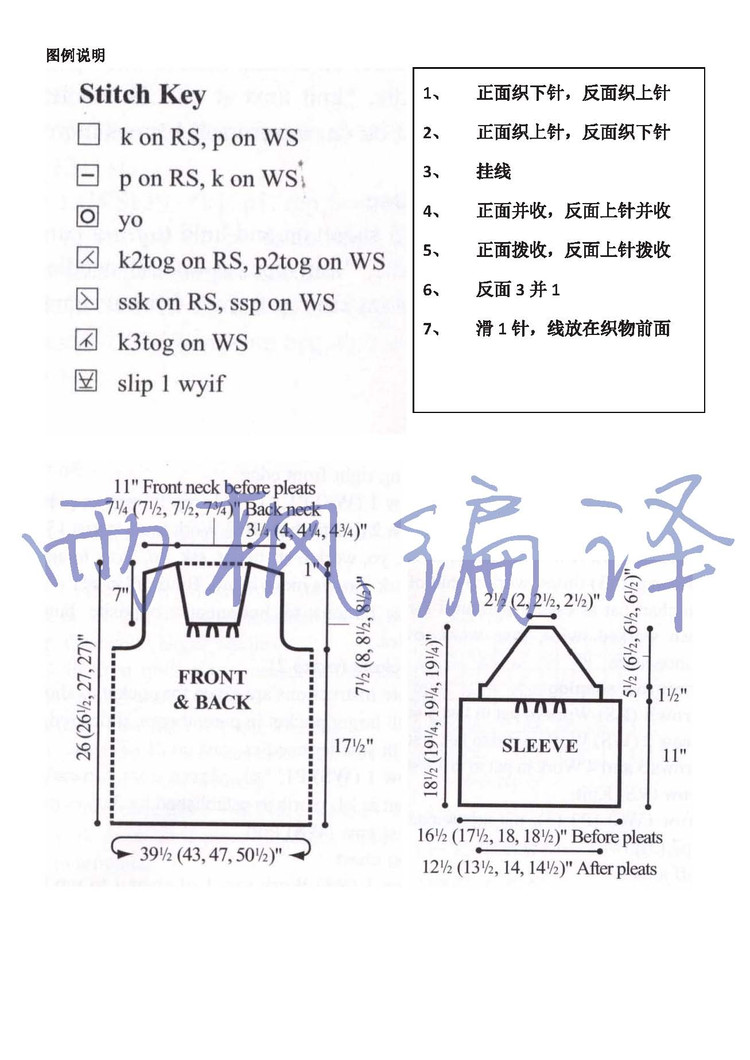 图例说明
Stitch Key
k on RS, p on WS
p on RS, k on WS
yo
k2tog on RS, p2tog on WS
ssk on RS, ssp on WS
k3tog on WS
slip 1 wyif
1、 正面织下针，反面织上针
2、 正面织上针，反面织下针
3、 挂线
4、 正面并收，反面上针并收
5、 正面拨收，反面上针拨收
6、 反面 3 并 1
7、 滑 1 针，线放在织物前面
11" Front neck before pleats
7¼ (7½, 7½, 7¾)" Back neck
3¼ (4, 4¼, 4¾)"
1"
7"
7½ (8, 8½, 8½)"
26 (26½, 27, 27)"
FRONT
& BACK
17½"
39½ (43, 47, 50½)"
2½ (2, 2½, 2½)"
5½ (6½, 6½, 6½)"
18½ (19¼, 19¼, 19¼)"
1½"
SLEEVE
11"
16½ (17½, 18, 18½)" Before pleats
12½ (13½, 14, 14½)" After pleats
编译